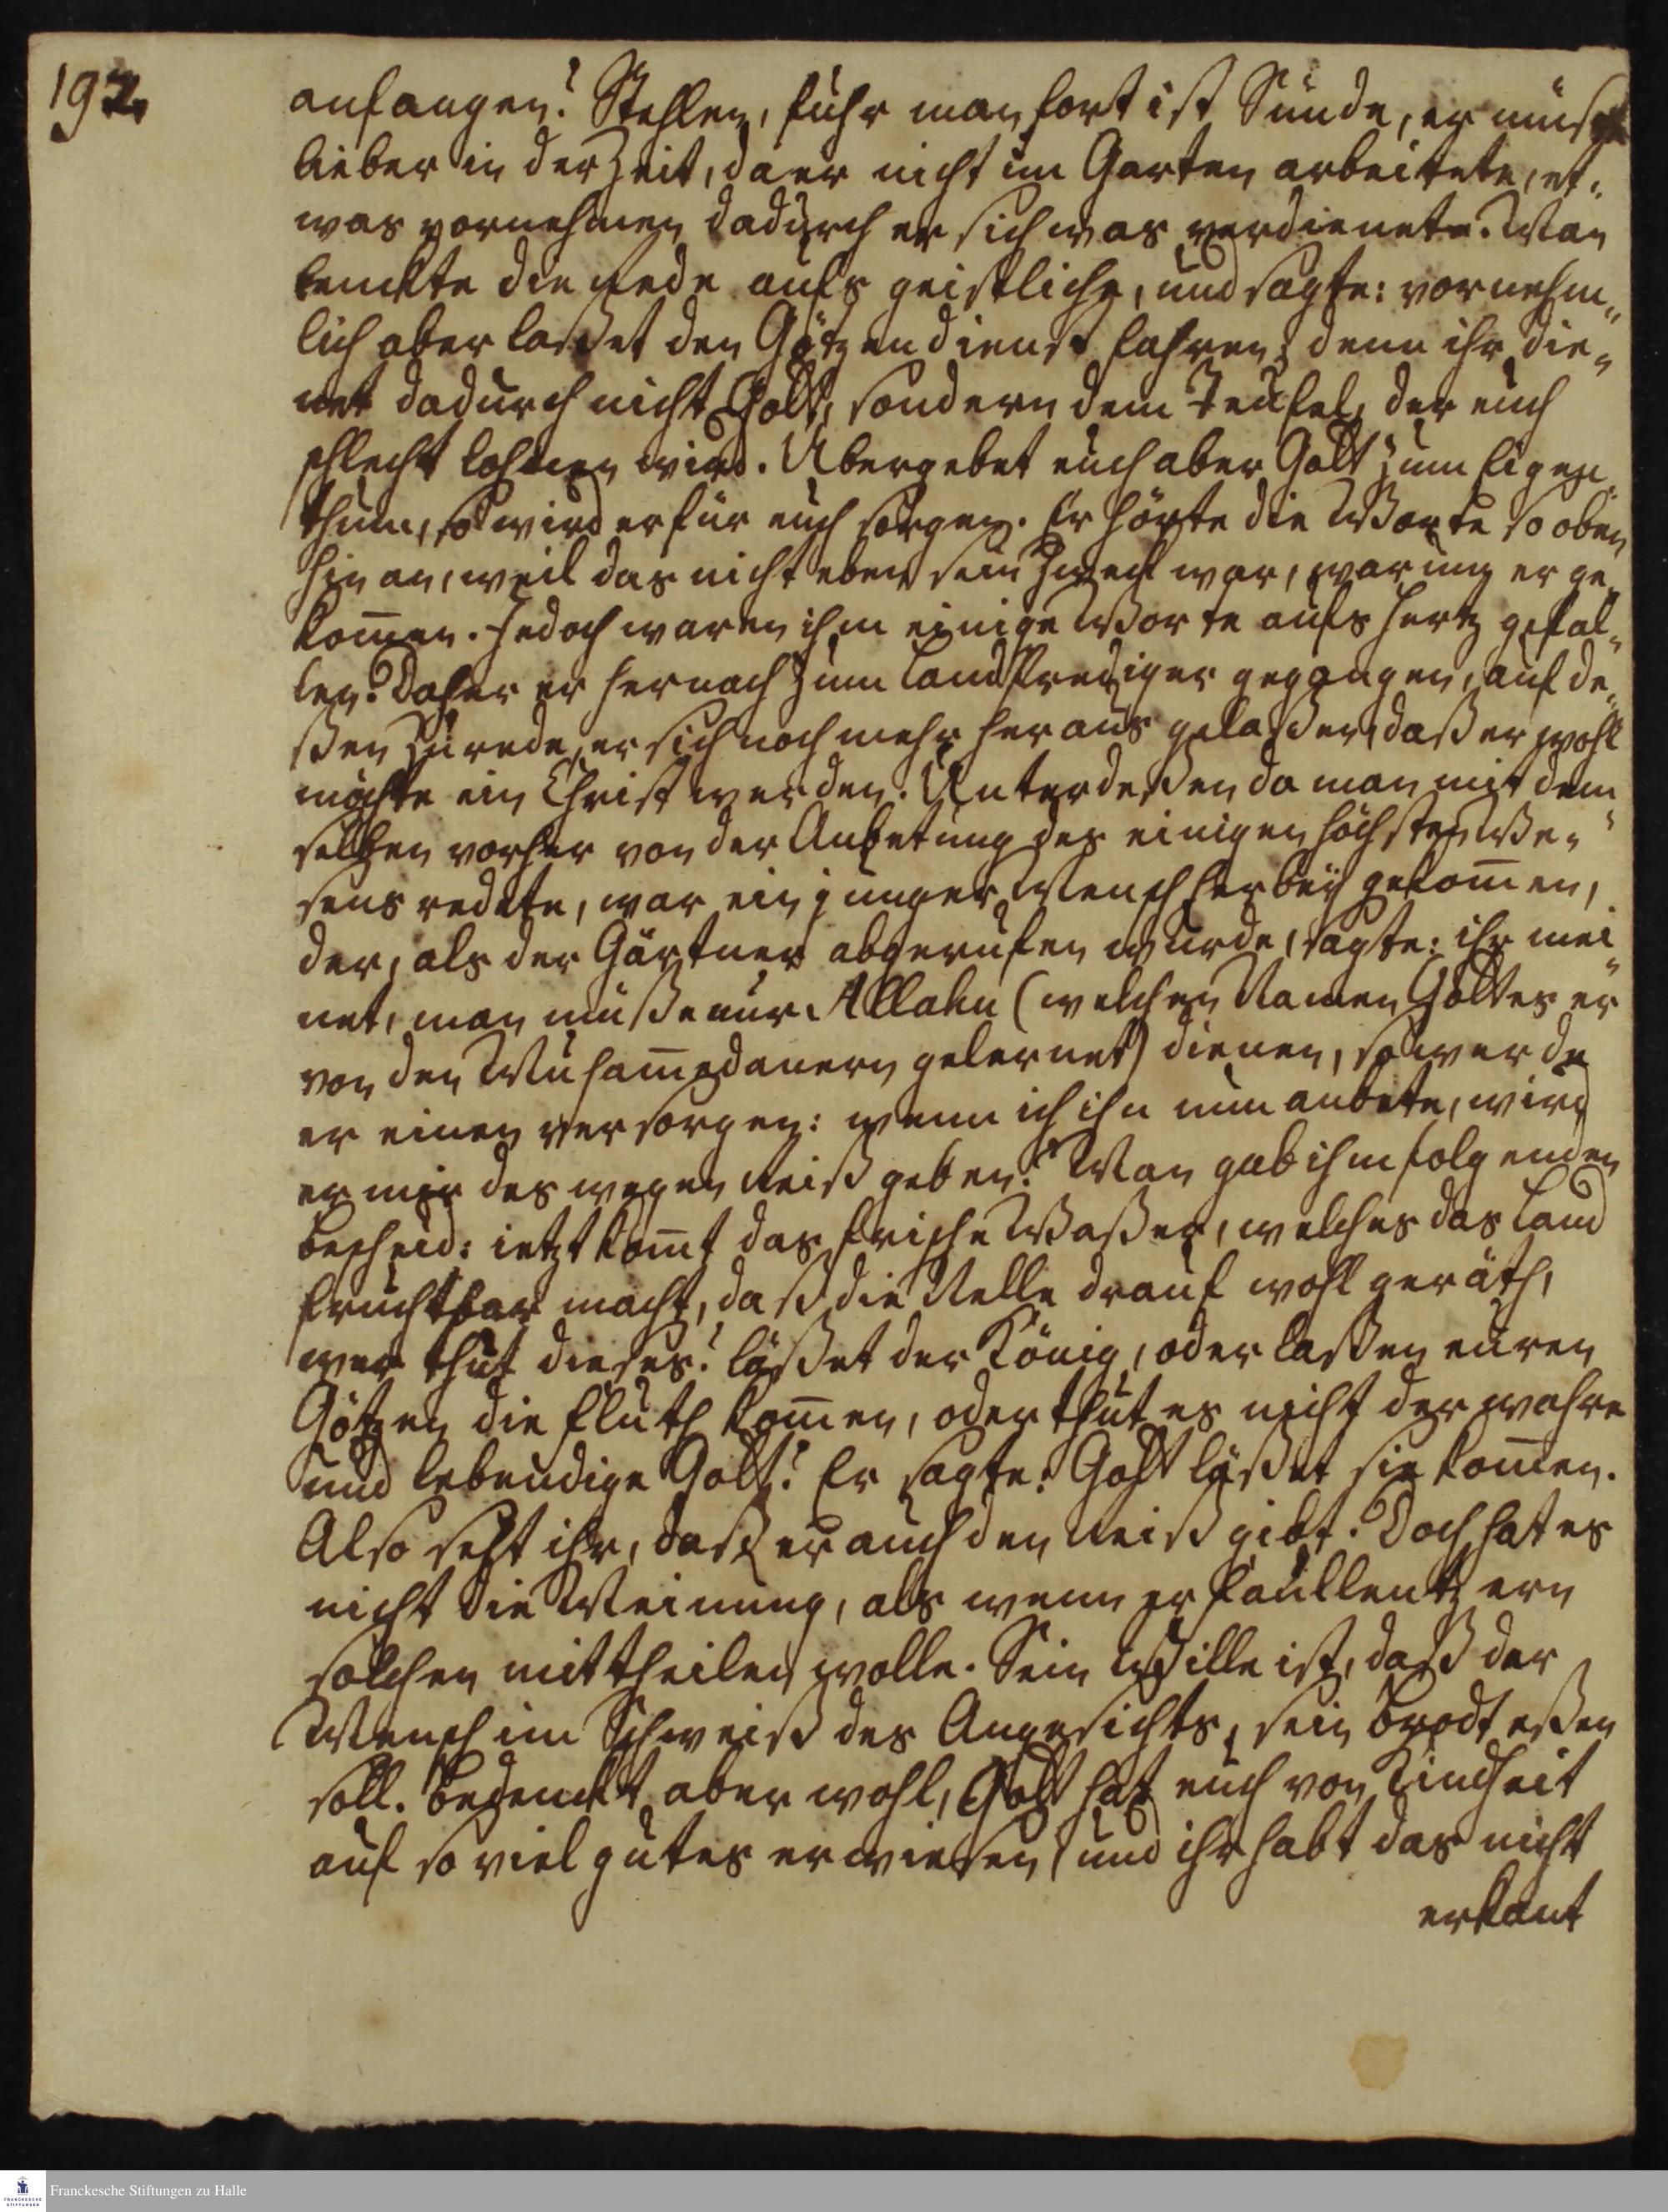 192.
anfangen? Stehlen, fuhr man fort ist Sünde, er müße
lieber in der Zeit, da er nicht im Garten arbeitete, et-
was vornehmen dadurch er sich was verdienete. Man
lenckte die rede aufs geistliche, und sagte: vornehm-
lich aber laßet den Götzendienst fahren; denn ihr die-
net dadurch nicht Gott, sondern dem Teufel, der euch
schlecht lohnen wird. Übergebet euch aber Gott zum Eigen-
thum, so wird er für euch sorgen. Er hörte die Worte so oben
hin an, weil das nicht eben sein Zweck war, warum er ge-
kom̄en. Jedoch waren ihm einige Worte aufs Hertz gefal-
len. Daher er hernach zum Landprediger gegangen, auf de-
ßen Zurede, er sich noch mehr heraus gelaßen, daß er wohl
möchte ein Christ werden. Unterdeßen da man mit dem
selben vorher von der Anbetung des einigen höchsten We-
sens redete, war ein junger Mensch herbey gekom̄en,
der, als der Gärtner abgerufen wurde, sagte: ihr mei-
net, man müße nur Allahu (welchen Namen Gottes er
von den Muham̄edanern gelernet) dienen, so werde
er einen versorgen: wenn ich ihn nun anbete, wird
er mir des wegen Reiß geben? Man gab ihm folgenden
Bescheid: ietzt kom̄t das frische Waßer, welches das Land
fruchtbar macht, daß die Nelle drauf wohl geräth,
wer thut dieses? läßet der König, oder laßen euren
Götzen die Fluth kom̄en, oder thut es nicht der wahre
und lebendige Gott? Er sagte: Gott läßet sie kom̄en.
Also seht ihr, daß er auch den Reiß gibt. Doch hat es
nicht die Meinung, als wenn er Faullentzern
solchen mittheilen wolle. Sein Wille ist, daß der
Mensch im Schweiß des Angesichts, sein Brodt eßen
soll. Bedenckt aber wohl, Gott hat euch von Kindheit
auf so viel gutes erwiesen, und ihr habt das nicht
erkant
Franckesche Stiftungen zu Halle
FRANCKESCHE STIFTUNGEN